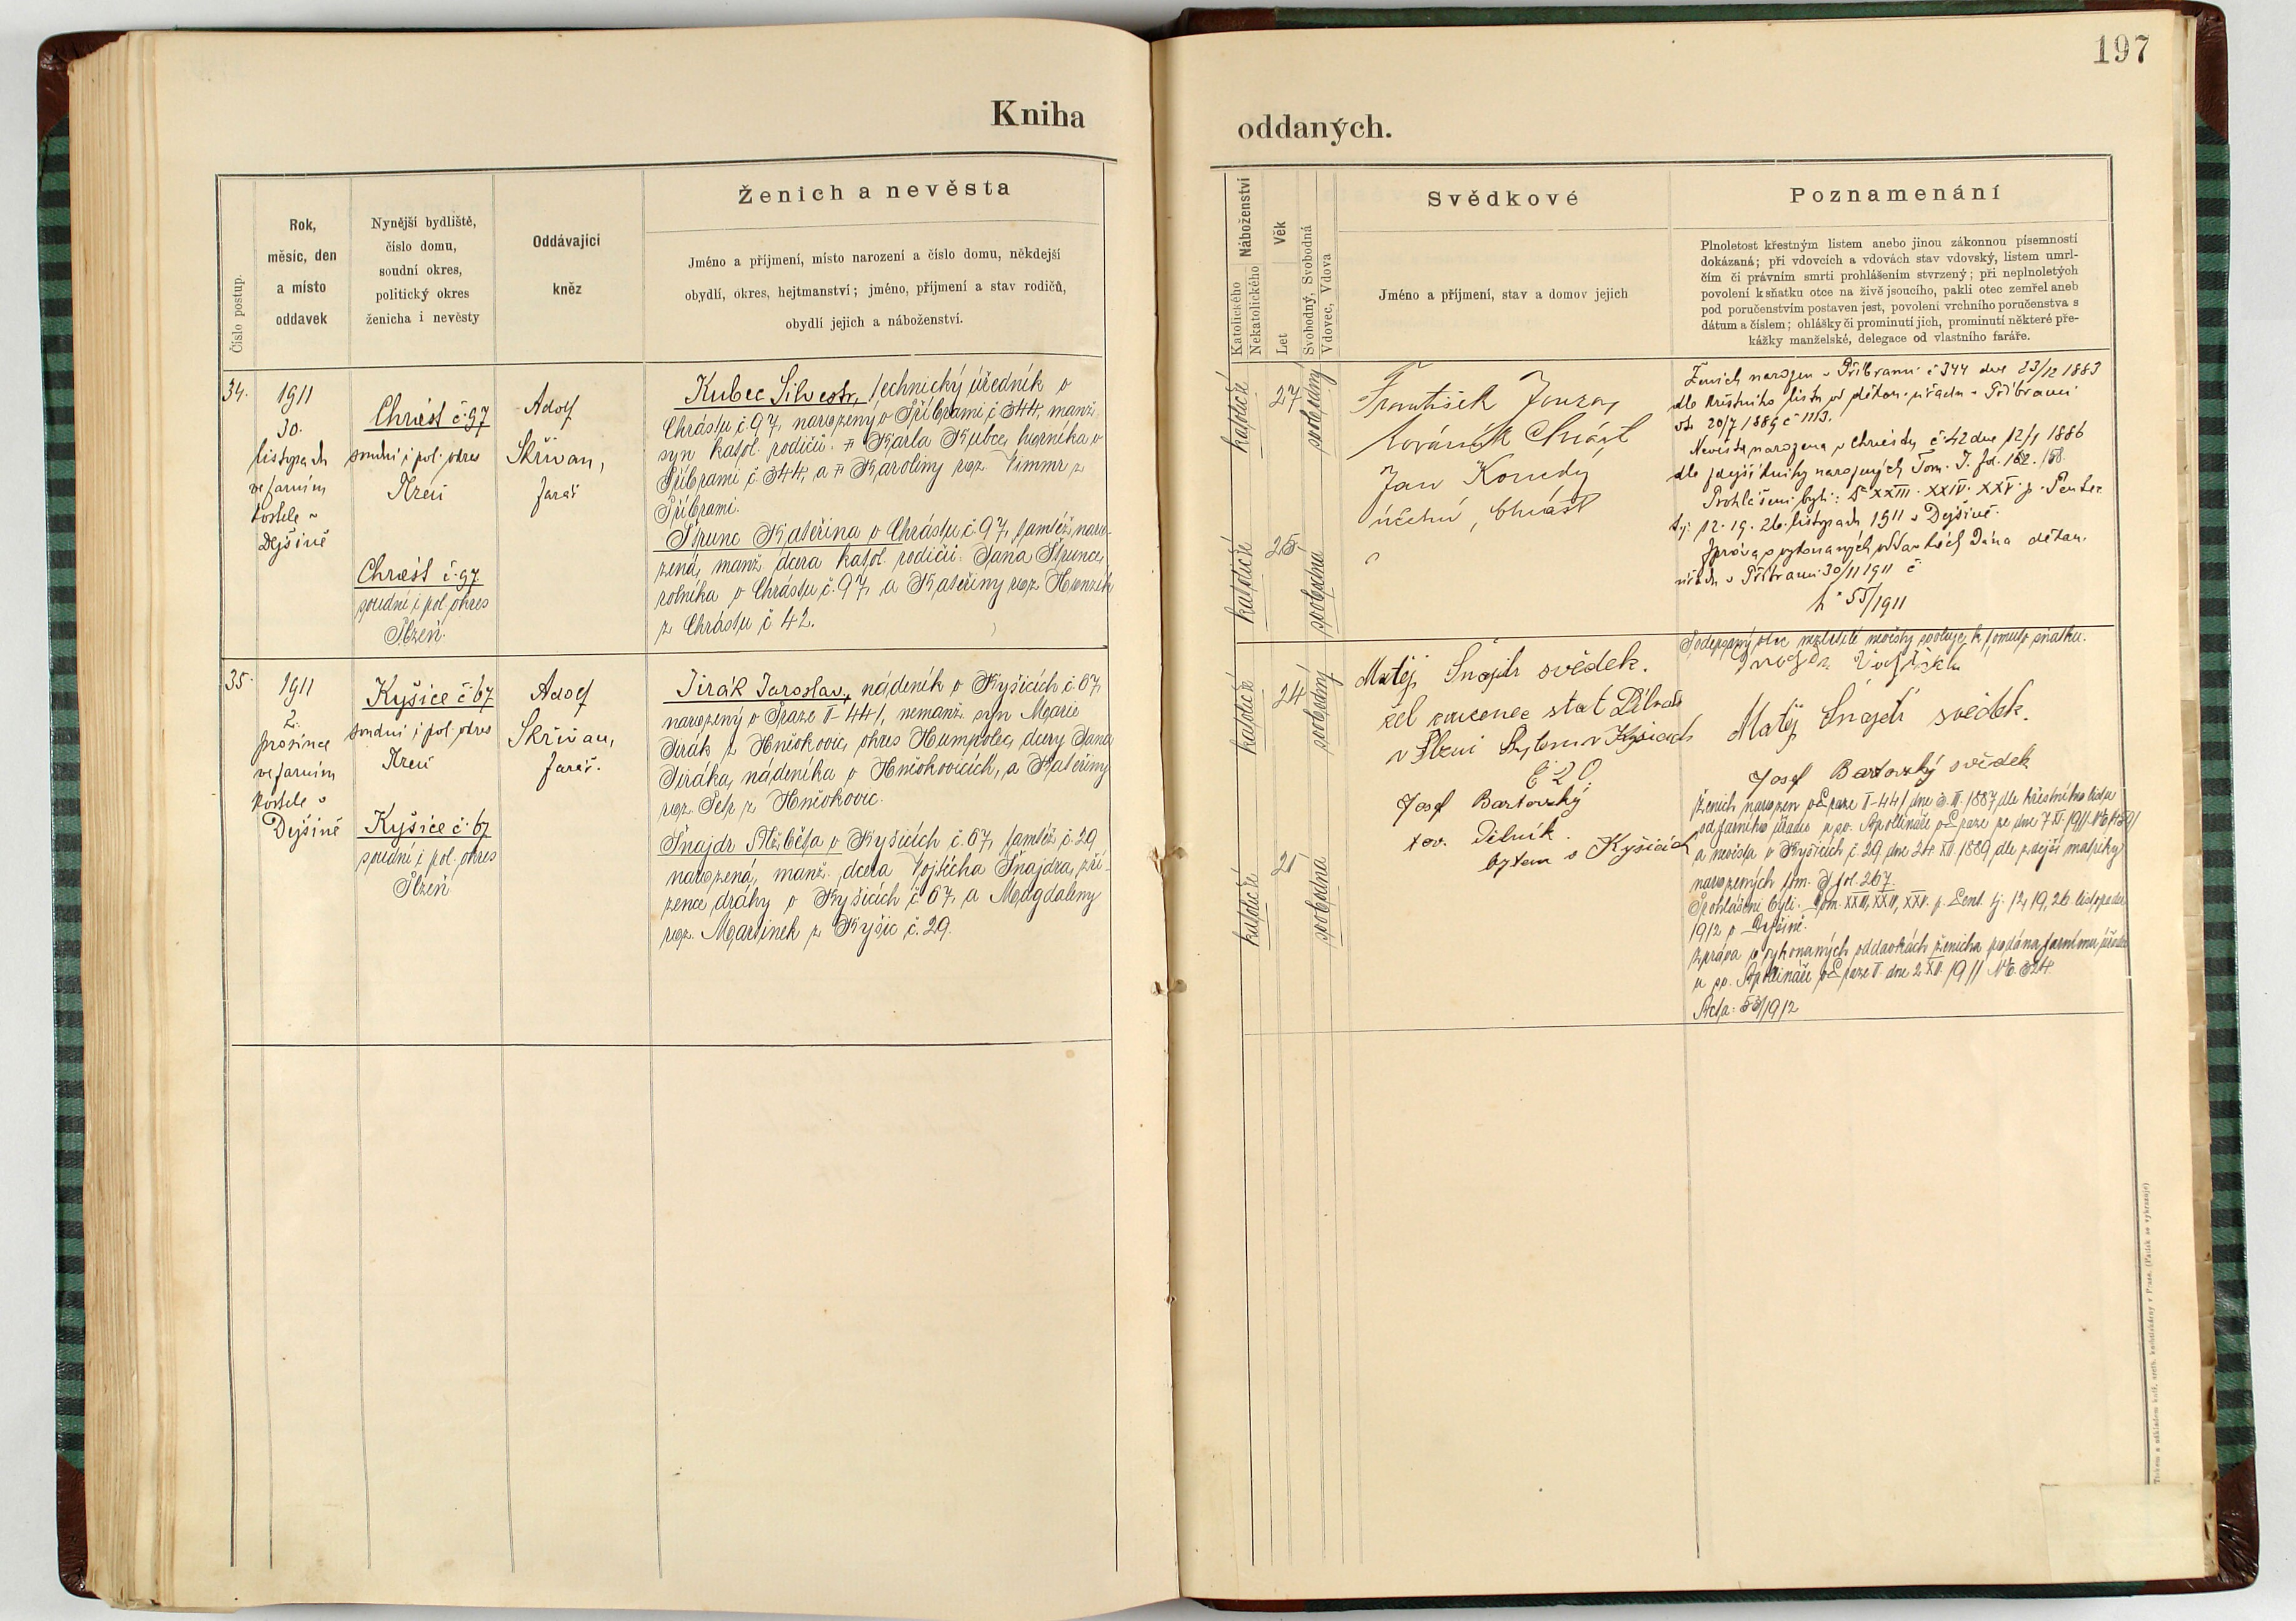 197
Kniha
oddaných.
Číslo postup.
Rok,
měsíc, den
a místo
oddavek
Nynější bydliště,
číslo domu,
soudní okres,
politický okres
ženicha i nevěsty
Oddávající
kněz
Ženich a nevěsta
Jméno a příjmení, místo narození a číslo domu, někdejší
obydlí, okres, hejtmanství; jméno, příjmení a stav rodičů,
obydlí jejich a náboženství.
Náboženství
Katolického
Nekatolického
Věk
Let
Svobodný, Svobodná
Vdovec, Vdova
Svědkové
Jméno a příjmení, stav a domov jejich
Poznamenání
Plnoletost křestným listem anebo jinou zákonnou písemností
dokázaná; při vdovcích a vdovách stav vdovský, listem umrl-
čím či právním smrti prohlášením stvrzený; při neplnoletých
povolení k sňatku otce na živě jsoucího, pakli otec zemřel aneb
pod poručenstvím postaven jest, povolení vrchního poručenstva s
dátum a číslem; ohlášky či prominutí jich, prominutí některé pře-
kážky manželské, delegace od vlastního faráře.
34.
1911
30.
listopadu
ve farním
kostele v
Dejšině
Chrást č. 97
soudní i pol. okres
Plzeň
Chrást č. 97
soudní i pol. okres
Plzeň.
Adolf
Skřivan,
farář
Kubec Silvestr, technický úředník v
Chrástu č. 97, narozený v Příbrami č 344, manž.
syn katol. rodičů: Karla Kubce, horníka v
Příbrami č. 344, a Karoliny roz. Vimmr z
Příbrami.
Štrunc Kateřina v Chrástu č. 97, tamtéž naro-
zená, manž. dcera katol. rodičů: Jana Štrunce,
rolníka v Chrástu č. 97, a Kateřiny roz. Honzík
z Chrástu č 42.
katolické
27
svobodný
katolické
25
svobodná
František
Chrást
Jan
Chrást
Ženich narozen v Příbrami č 344 dne 23/12 1883
dle křestního listu od děkan. úřadu v Příbrami
20/7 1889 č 1113.
Nevěsta narozena v Chrástu č 42 dne 12/1 1886
dle zdejší knihy narozených Tom. I. fol. 162.
Prohlášeni byli: XXIII. XXIV. XXV. p.
tj. 12. 19. 26. listopadu 1911 v Dejšině.
Zpráva o vykonaných oddavkách dána děkan.
úřadu v Příbrami 30/11 1911 č
55/1911
35.
1911
2.
prosince
ve farním
kostele v
Dejšině
Kyšice č. 67
soudní i pol. okres
Plzeň
Kyšice č. 67
soudní i pol. okres
Plzeň
Adolf
Skřivan,
farář.
Jirák Jaroslav, nádeník v Kyšicích č. 67,
narozený v Praze II-441, nemanž. syn Marie
Jirák z Hněvkovic, okres Humpolec, dcery Jana
Jiráka, nádeníka v Hněvkovicích, a Kateřiny
roz. Petr z Hněvkovic.
Šnajdr Alžběta v Kyšicích č. 67, tamtéž č. 29
narozená, manž. dcera Vojtěcha Šnajdra, zří-
zence dráhy v Kyšicích č 67, a Magdaleny
roz. Martinek z Kyšic č. 29.
katolické
24
svobodný
katolické
21
svobodná
Matěj Šnajdr svědek.
stat
v Plzni bytem v Kyšicích
Č 20
Josef Bartovský
tov. Dělník.
bytem v Kyšicích
Podepsaný otec nezletilé nevěsty svoluje k tomuto sňatku.
Matěj Šnajdr svědek.
Josef Bartovský svědek
Ženich narozen v Praze II-441 dne 3. II. 1887 dle křestního listu
od farního úřadu u sv. Apollináře v Praze ze dne 7.XI. 1911
a nevěsta v Kyšicích č. 29 dne 24. XI. 1889 dle zdejší matriky
narozených tom. I fol. 267.
Prohlášeni byli: Dom. XXIII, XXIV, XXV. p. Pent. tj. 12, 19, 26 listopadu
1912 v Dejšině.
Zpráva o vykonaných oddavkách ženicha podána farnímu úřadu
u sv. Apollináře v Praze II. dne 2. XII. 1911 No 324.
Acta: 53/1912